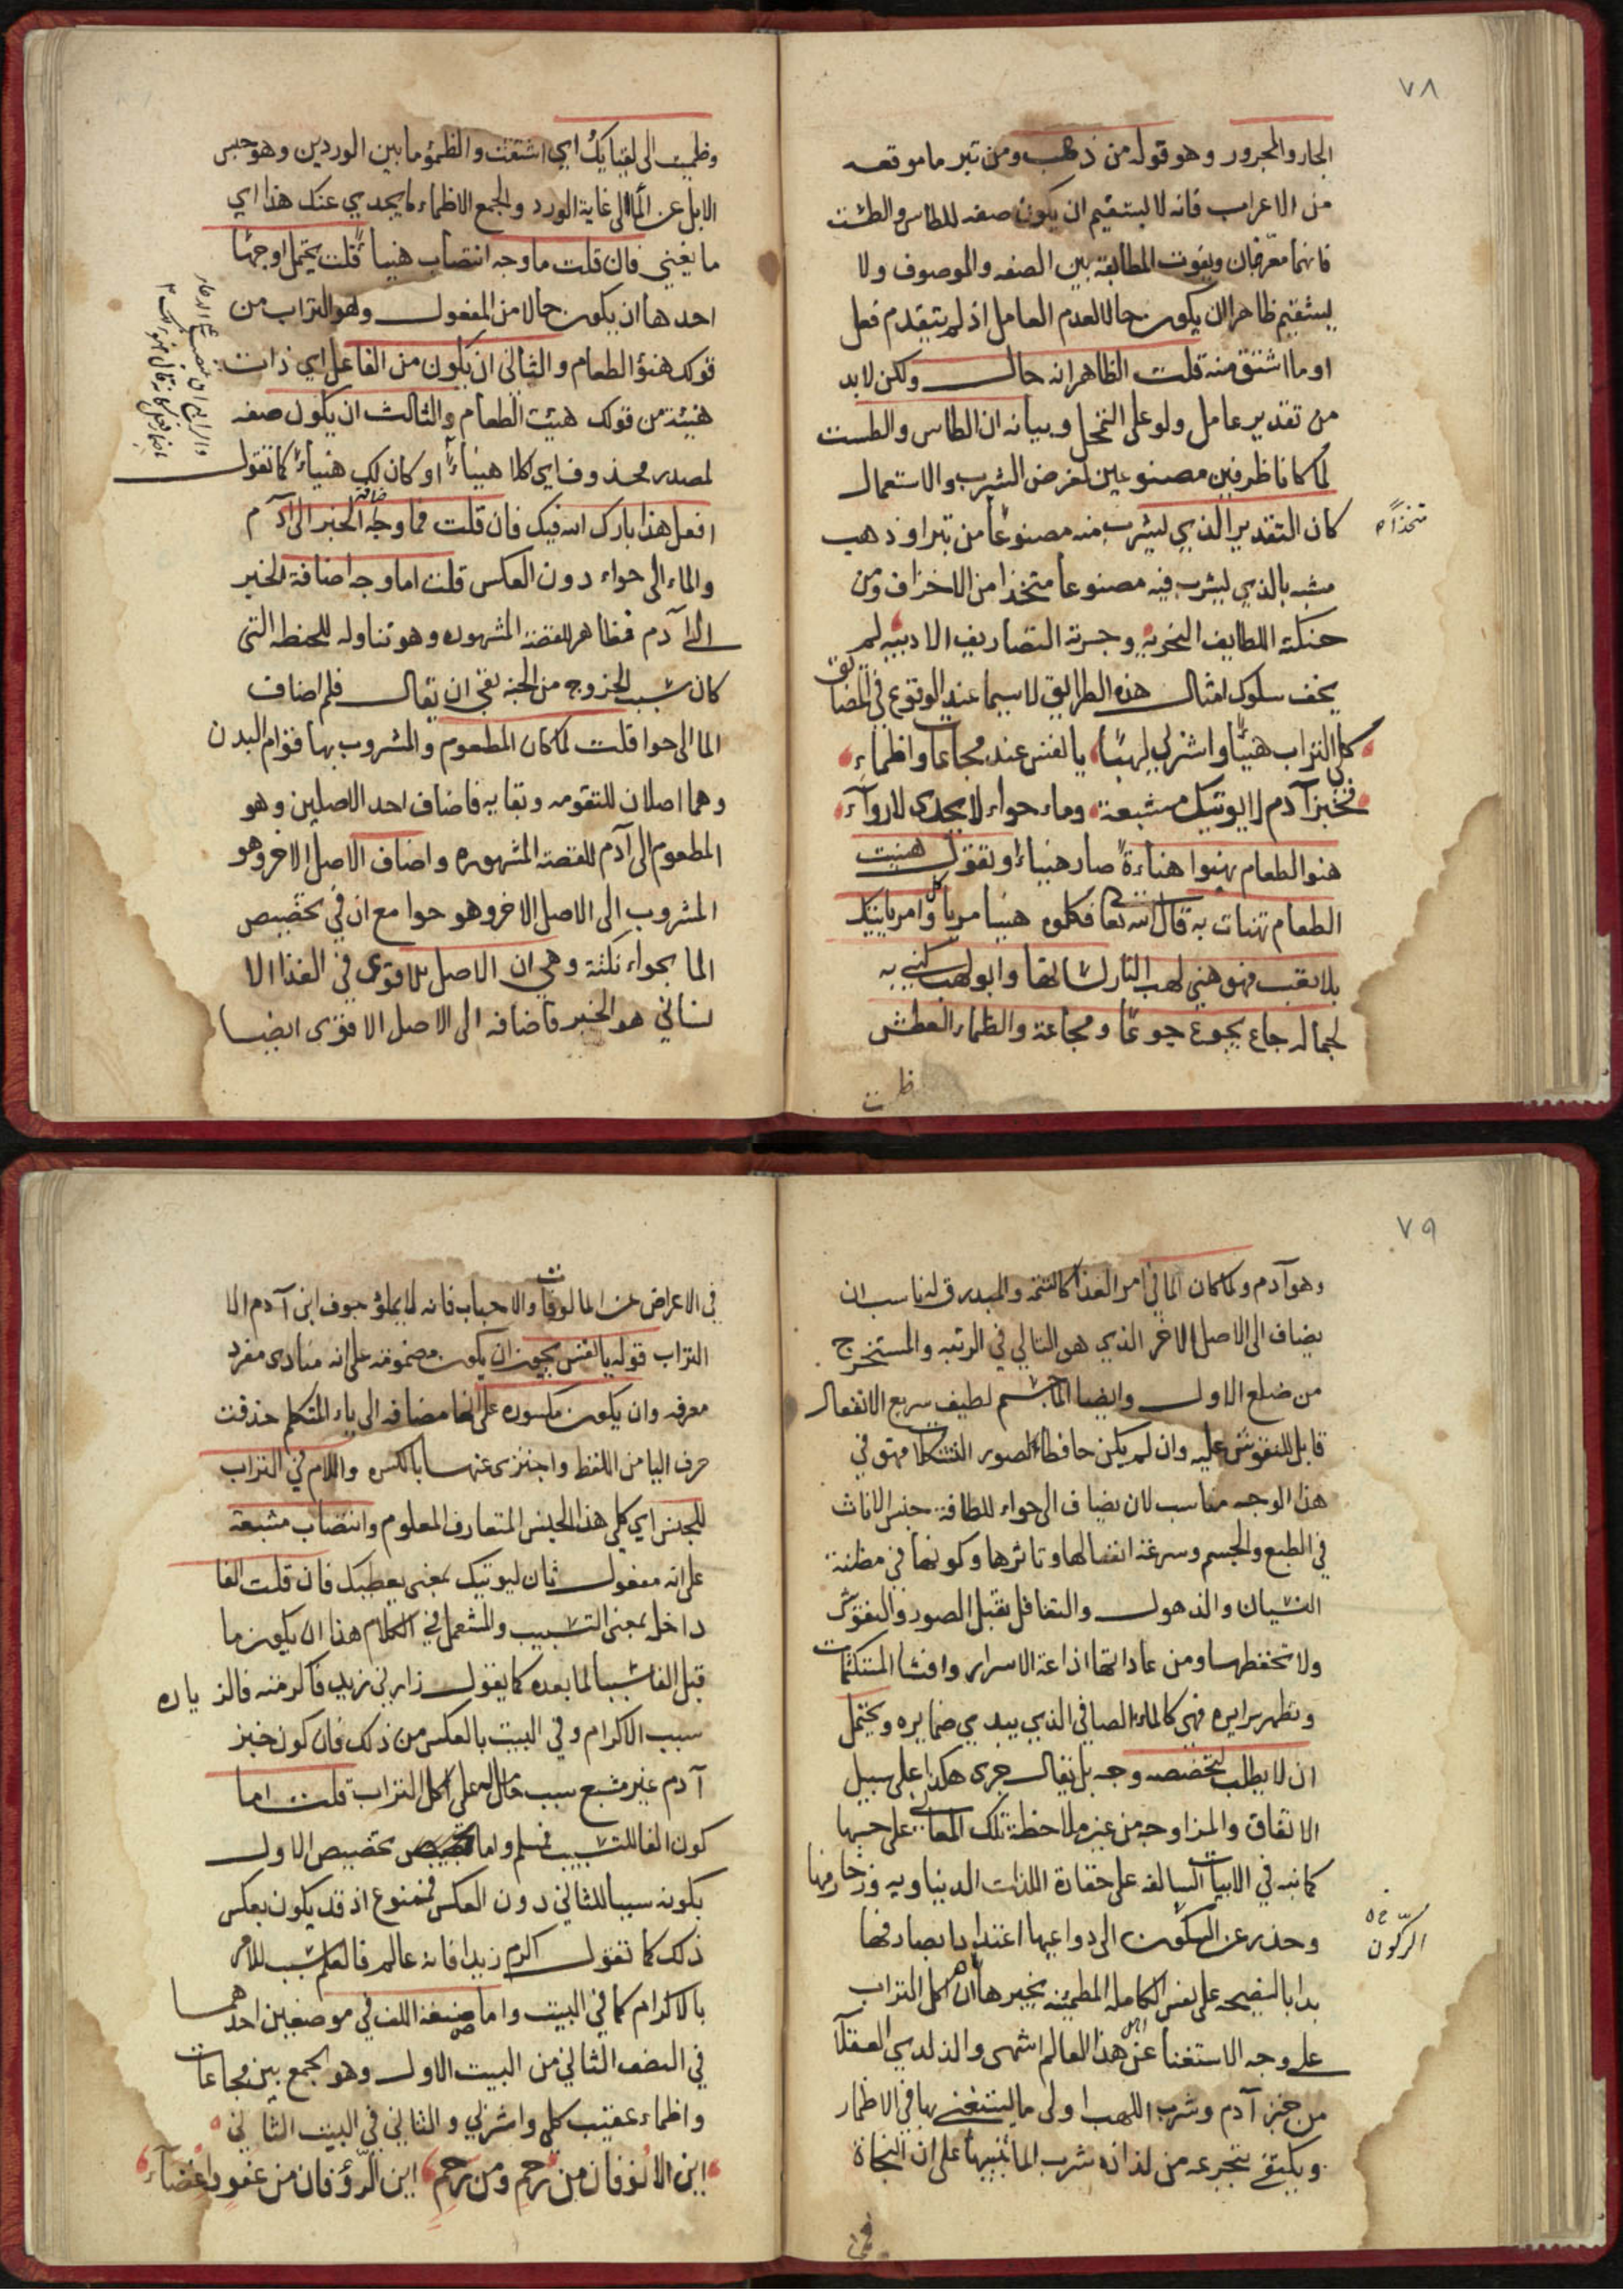 ٧٨
الجار والمجرور وهو قوله من ذهب ومن تبر ما موقعه
من الاعراب فانه لا يستقيم ان يكون صفه للطاس والطست
فانهما معرفان ويفوت المطابقة بين الصفه والموصوف ولا
يستقيم ظاهرا ان يكون حالا لعدم العامل اذ لم يتقدم فعل
او ما اشتق منه قلت الظاهر انه حال ولكن لا بد
من تقدير عامل ولو على التمحل وبيانه ان الطاس والطست
لما كانا ظرفين مصنوعين لغرض الشرب والاستعمال
كان التقدير الذي ليشرب منه مصنوعا من تبر او ذهب
متخذا
مشبه بالذي ليشرب فيه مصنوعا متخذا من الاخزاف ومن
حنكته اللطايف النحوية وجرته التصاريف الادبيه لم
يخف سلوك امثال هذه الطرايق لا سيما عند الوقوع في المضايق
كلي التراب هنيّا واشربي لهبا يا نفس عند مجاعات واظماء
فخبز آدم لا يوتيك مشبعة وماء حواء لا يجدى لاروآء
هنو الطعام يهنوا هناءة صار هنياء او تقول هنيت
الطعام تهنات به قال الله تعا فكلوه هنيا مريا وامر ياتيك
بلا تعب فهو هني لهب النار لسانها وابو لهب كني به
لجماله جاع يجوع جوعا ومجاعة والظماء العطش
ظمت
وظميت الى لقيايك اي اشتقت والظمؤ ما بين الوردين وهو حبس
الابل عن الما الى غاية الورد والجمع الاظماء ما يجدي عنك هذا اي
ما يغني فان قلت ما وجه انتصاب هنيا قلت يحتمل اوجها
احدها ان يكون حالا من المفعول وهو التراب من
قولك هنؤ الطعام والثاني ان يكون من الفاعل اي ذات
هنيئة من قولك هنيت الطعام والثالث ان يكون صفه
لمصدر محذوف اي اكلا هنياء او كان لك هنياء كما تقول
افعل هذا بارك الله فيك فان قلت فما وجه اضافة الخبز الى آدم
والماء الى حواء دون العكس قلت اما وجه اضافة الخبز
الى آدم فظاهر للقصة المشهوره وهو تناوله للحنطه التي
كان سبب الخروج من الجنه بقي ان يقال فلم اضاف
الما الى حوا قلت لما كان المطعوم والمشروب بها قوام البدن
وهما اصلان للتقومه وبقايه فاضاف احد الاصلين وهو
المطعوم الى آدم للقصته المشهوره واضاف الاصل الاخر وهو
المشروب الى الاصل الاخر وهو حوا مع ان في تخصيص
الما بحواء نكتة وهي ان الاصل للاقوى في الغذا الا
نساني هو الخبز فاضافه الى الاصل الاقوى ايضا
٧٩
وهو آدم ولما كان الما في امر الغذا كالتتمه والمبدرق له ناسب ان
يضاف الى الاصل الاخر الذي هو التالي في الرتبه والمستخرج
من ضلع الاول وايضا الما جسم لطيف سريع الانفعال
قابل للنقوش عليه وان لم يكن حافظا لصور التشكلات فهو في
هذا الوجه مناسب لان يضاف الى حواء للطافة جنس الاناث
في الطبع والجسم وسرعة انفعالها وتاثرها وكونها في مظنة
النسيان والذهول والتغافل تقبل الصور والنقوش
ولا تحفظها ومن عاداتها اذاعة الاسرار وافشا المستكنات
وتظهر سرايره فهي كالماء الصافي الذي يبدي ضمايره ويحتمل
ان لا يطلب لتخصصه وجه بل يقال جرى هكذا على سبيل
الاتفاق والمزاوجه من غير ملاحظة تلك المعاني على حسبها
كما نبه في الابيات السالفه على حقارة اللذات الدنياويه وزخارفها
وحذر عن السكون الى دواعيها اغتدايا بصادفها
الركون
بدا بالنصيحه على نفس الكامله المطمئنه يخبرها ان اكل التراب
على وجه الاستغنا عن هذا العالم اشهى والذ لدي العقلآ
من خبز آدم وشرب اللهب اولى ما ليستغنى بها في الاظمار
ويكتفى بتجرعه من لذاذه شرب الما تنبيها على ان النجاة
في
في الاعراض عن المالوفات والاحباب فانه لا يملؤ جوف ابن آدم الا
التراب قوله يا نفس يجوز ان يكون مضمومه على انه منادى مفرد
معرفه وان يكون مكسوره على انها مضافه الى ياء المتكلم حذفت
حرف اليا من اللفظ واجتزى عنها بالكسره واللام في التراب
للجنس اي كلي هذا الجنس المتعارف المعلوم وانتصاب مشبعة
على انه مفعول ثان ليوتيك بمعنى يعطيك فان قلت الفا
داخل بمعنى التسبيب والمستعمل في الكلام هذا ان يكون ما
قبل الفا سببا لما بعده كما يقول زارني زيد فاكرمته فالزياره
سبب الاكرام وفي البيت بالعكس من ذلك فان كون خبز
آدم غير مشبع سبب حامل له على اكل التراب قلت اما
كون الفا للتسبيب فمسلم واما تخصيص الاول
بكونه سببا للثاني دون العكس فممنوع اذ قد يكون بعكس
ذلك كما تقول اكرم زيدا فانه عالم فالعلم سبب للامر
بالاكرام كما في البيت واما صنيعة اللف في موضعين احدهما
في النصف الثاني من البيت الاول وهو الجمع بين مجاعات
واظماء عقيب كلي واشربي والثاني في البيت الثاني
اين الانوفان من رحم ومن رحم اين الرؤفان من عفو واغضآء